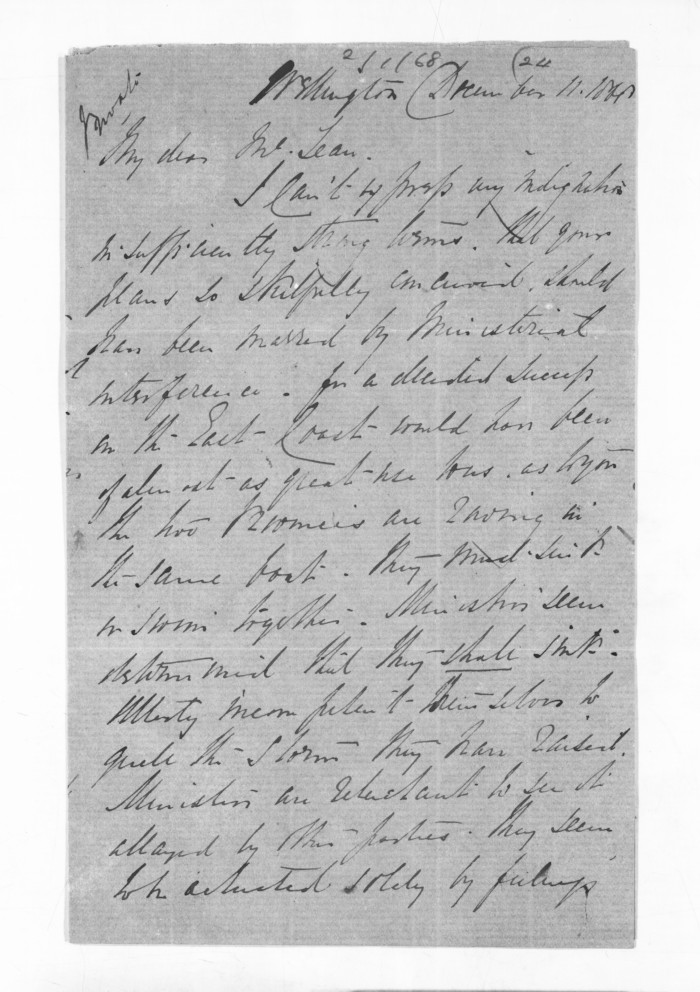 Private
Wellington December 11. 1868
My dear Mc.Lean.
I Can't express my indignation
in sufficiently strong terms. that your
plans so skilfully conceived, should
have been marred by Ministerial
interference. for a decided success
on the East Coast would have been
of almost as great use to us. as to you
the two Provinces are rowing in
the same boat. They must sink
or swim together. Ministers seem
determined that they shall sink.
Utterly incompetent themselves to
quell the storm they have raised.
Ministers are reluctant to see it
allayed by other parties. They seem
to be actuated solely by feelings